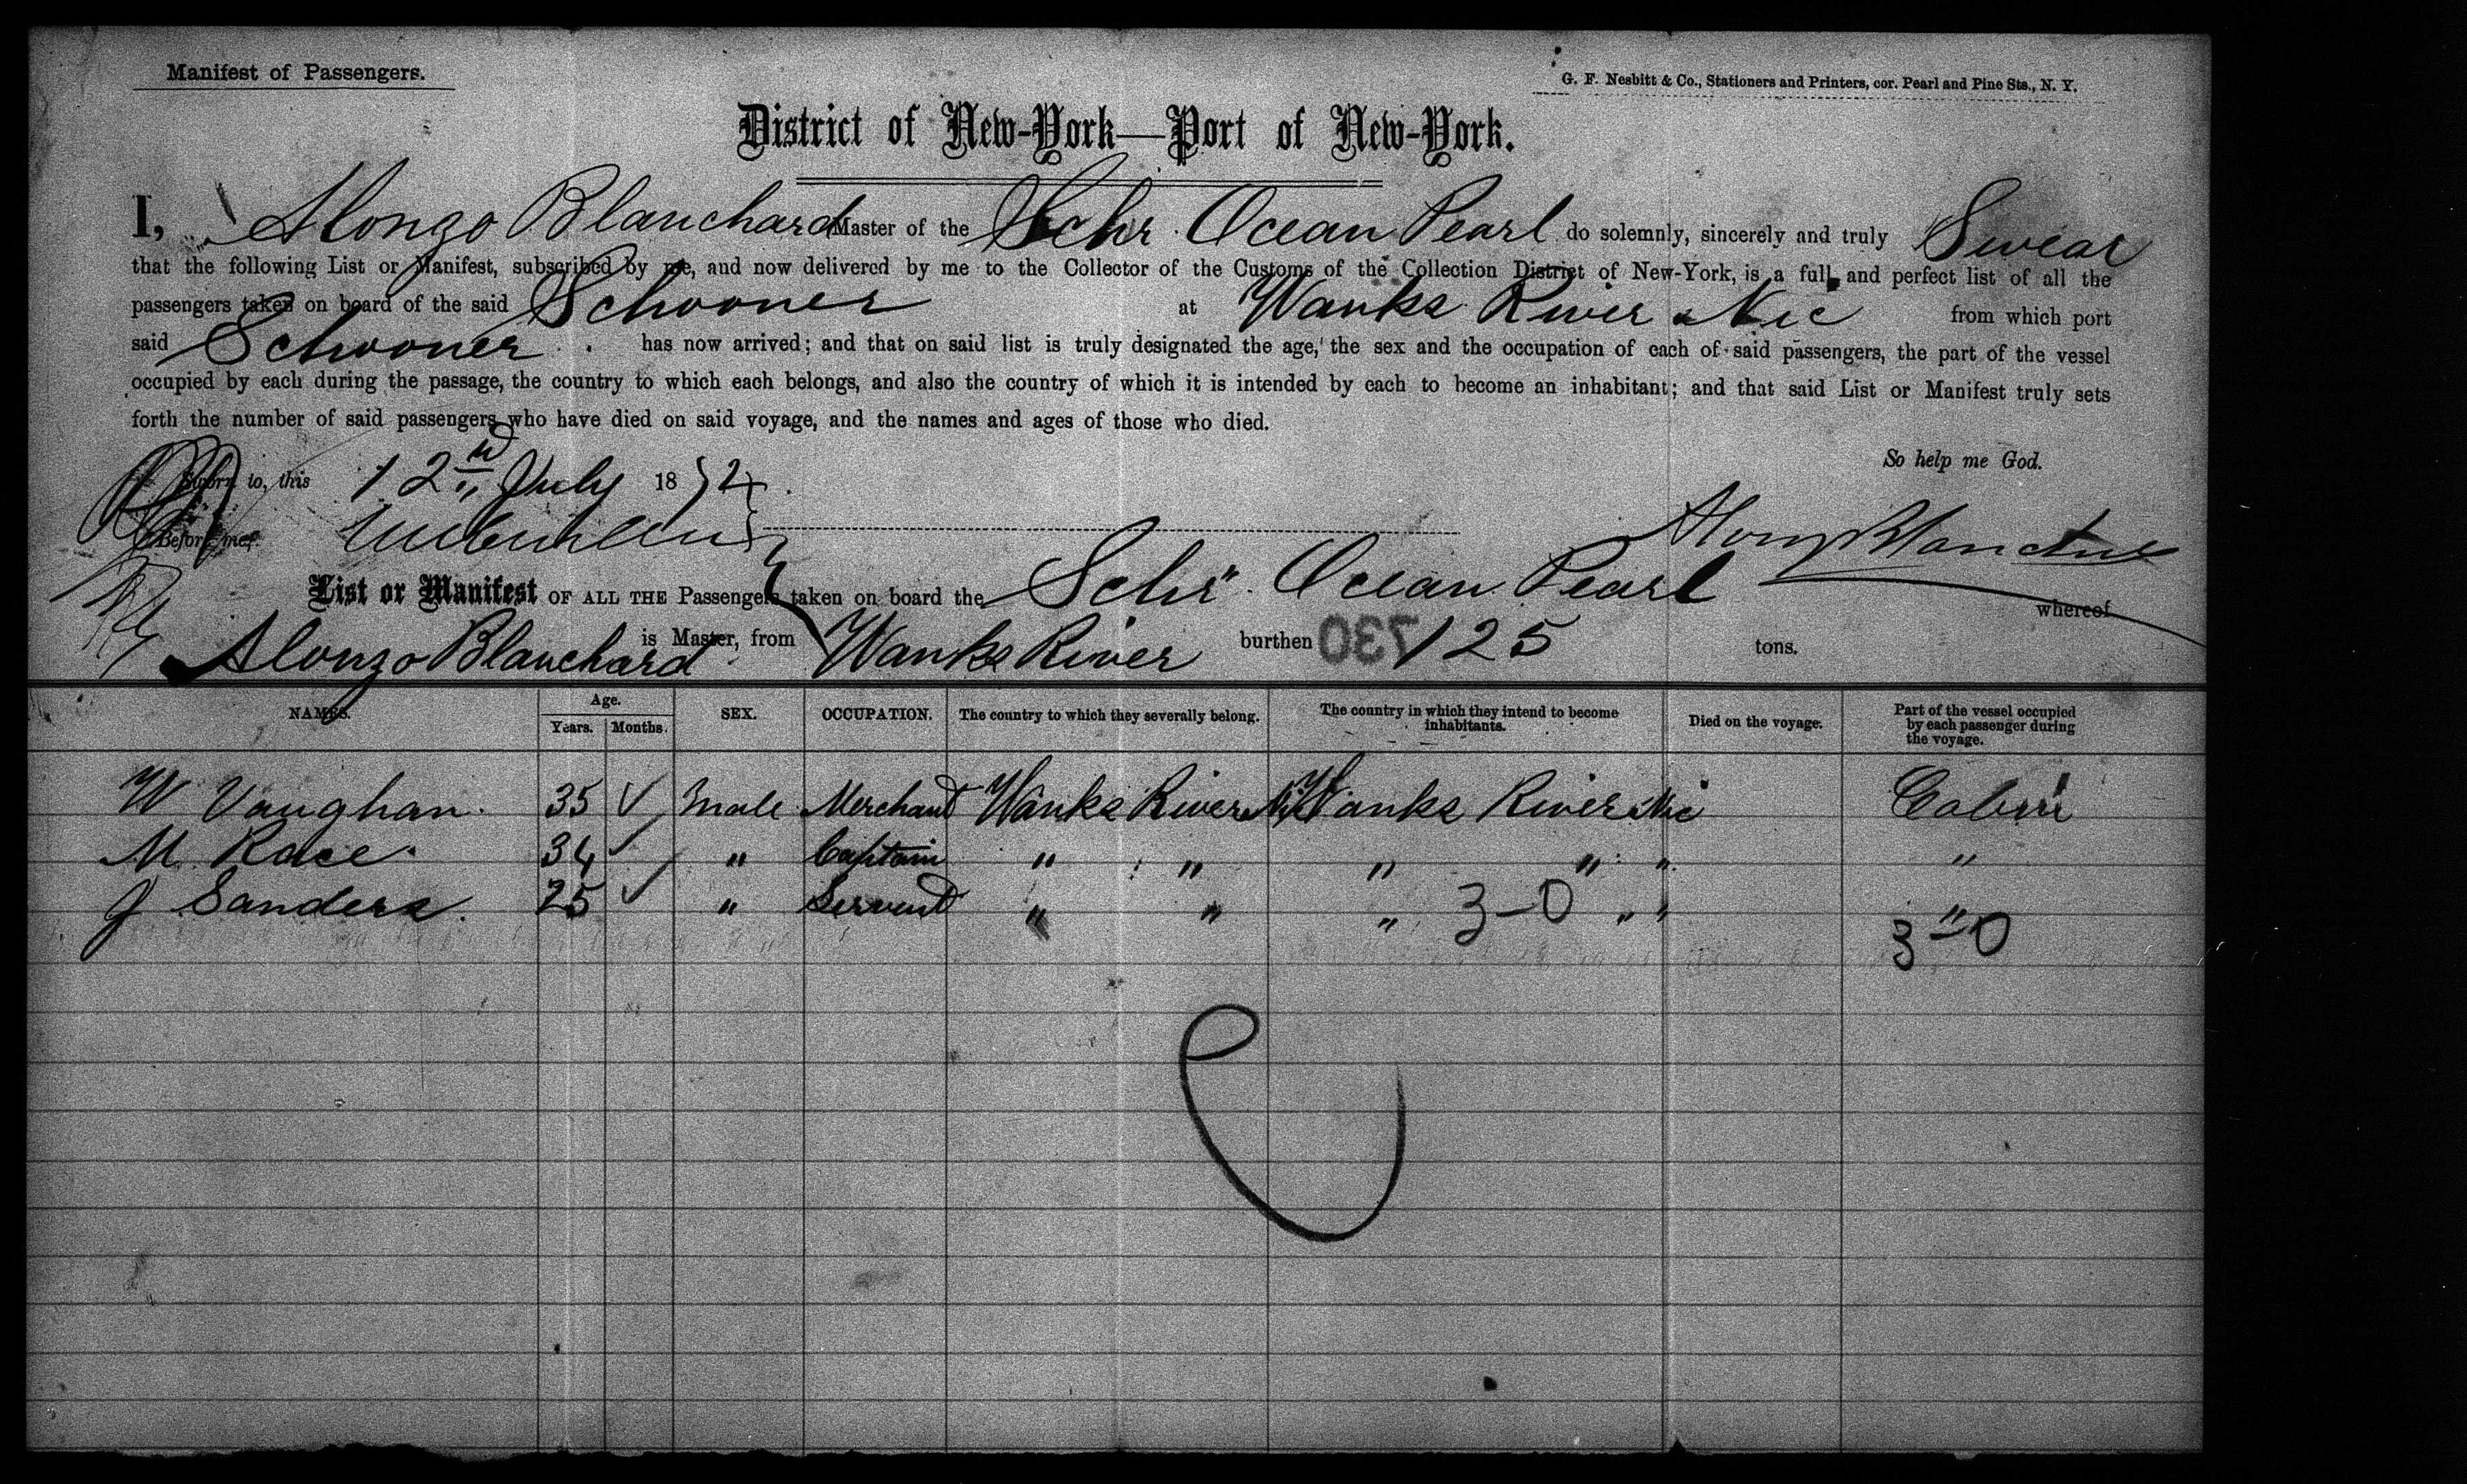 Manifest of Passengers.
G. F. Nesbitt & Co., Stationers and Printers, cor. Pearl and Pine Sts., N. Y.
District of New-York—Port of New-York.
I, Alonzo Blanchard Master of the Schr Ocean Pearl do solemnly, sincerely and truly Swear
that the following List or Manifest, subscribed by me, and now delivered by me to the Collector of the Customs of the Collection District of New-York, is a full and perfect list of all the
passengers taken on board of the said Schooner at Wanks River Nic from which port
said Schooner has now arrived; and that on said list is truly designated the age, the sex and the occupation of each of said passengers, the part of the vessel
occupied by each during the passage, the country to which each belongs, and also the country of which it is intended by each to become an inhabitant; and that said List or Manifest truly sets
forth the number of said passengers who have died on said voyage, and the names and ages of those who died.
So help me God.
Sworn to, this 12nd July 1874
Before me,
Alonzo Blanchard
List or Manifest OF ALL THE Passengers taken on board the Schr Ocean Pearl whereof
Alonzo Blanchard is Master, from Wanks River burthen 730 125 tons.
NAMES. Age. Years. Months. SEX. OCCUPATION. The country to which they severally belong. The country in which they intend to become inhabitants. Died on the voyage. Part of the vessel occupied by each passenger during the voyage.
W Vaughan. 35 ✓ Male Merchant Wanks River Nic Wanks River Nic Cabin
M Race. 34 ✓ " Captain " " " " " "
J Sanders. 25 ✓ " Servent " " " 3-0 " " "
3-0